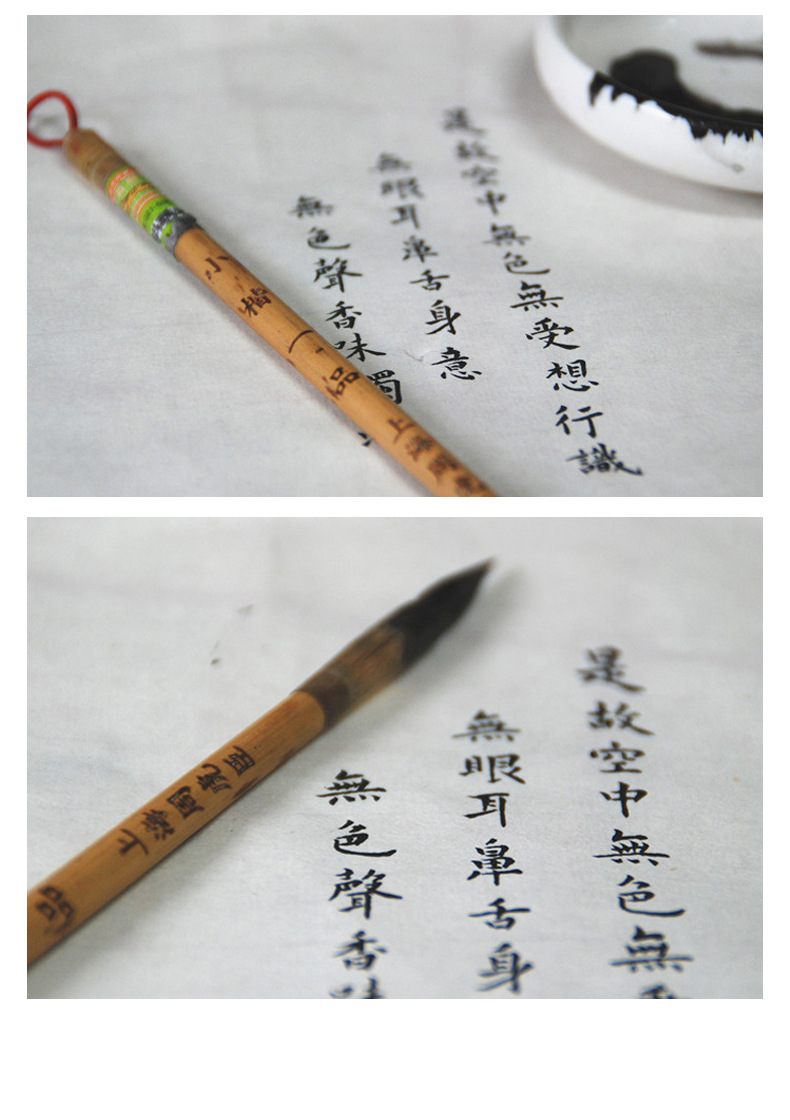 是故空中無色無受想行識
無眼耳鼻舌身意
無色聲香味
小楷一品 上海周
是故空中無色無
無眼耳鼻舌身
無色聲香味
品 上海周虎臣